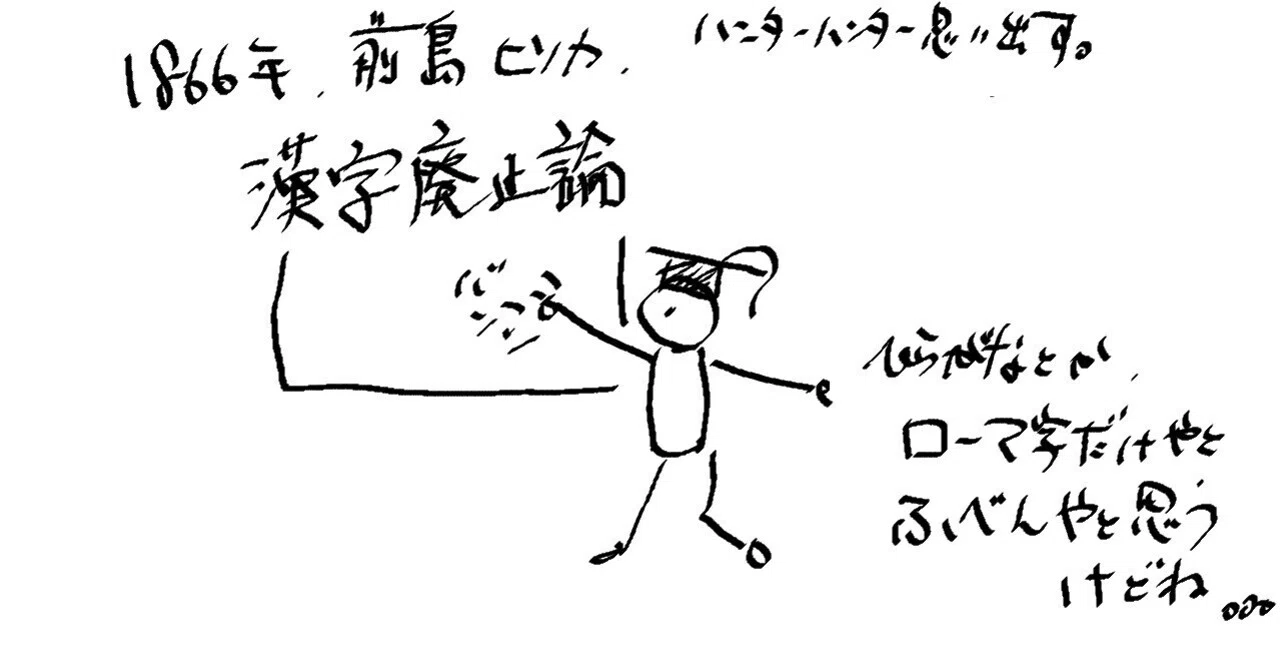 1866年、前島ヒソカ、
ハンターハンター思い出す。
漢字廃止論
バンッ
ひらがなとか、
ローマ字だけやと
ふべんやと思う
けどね。。。